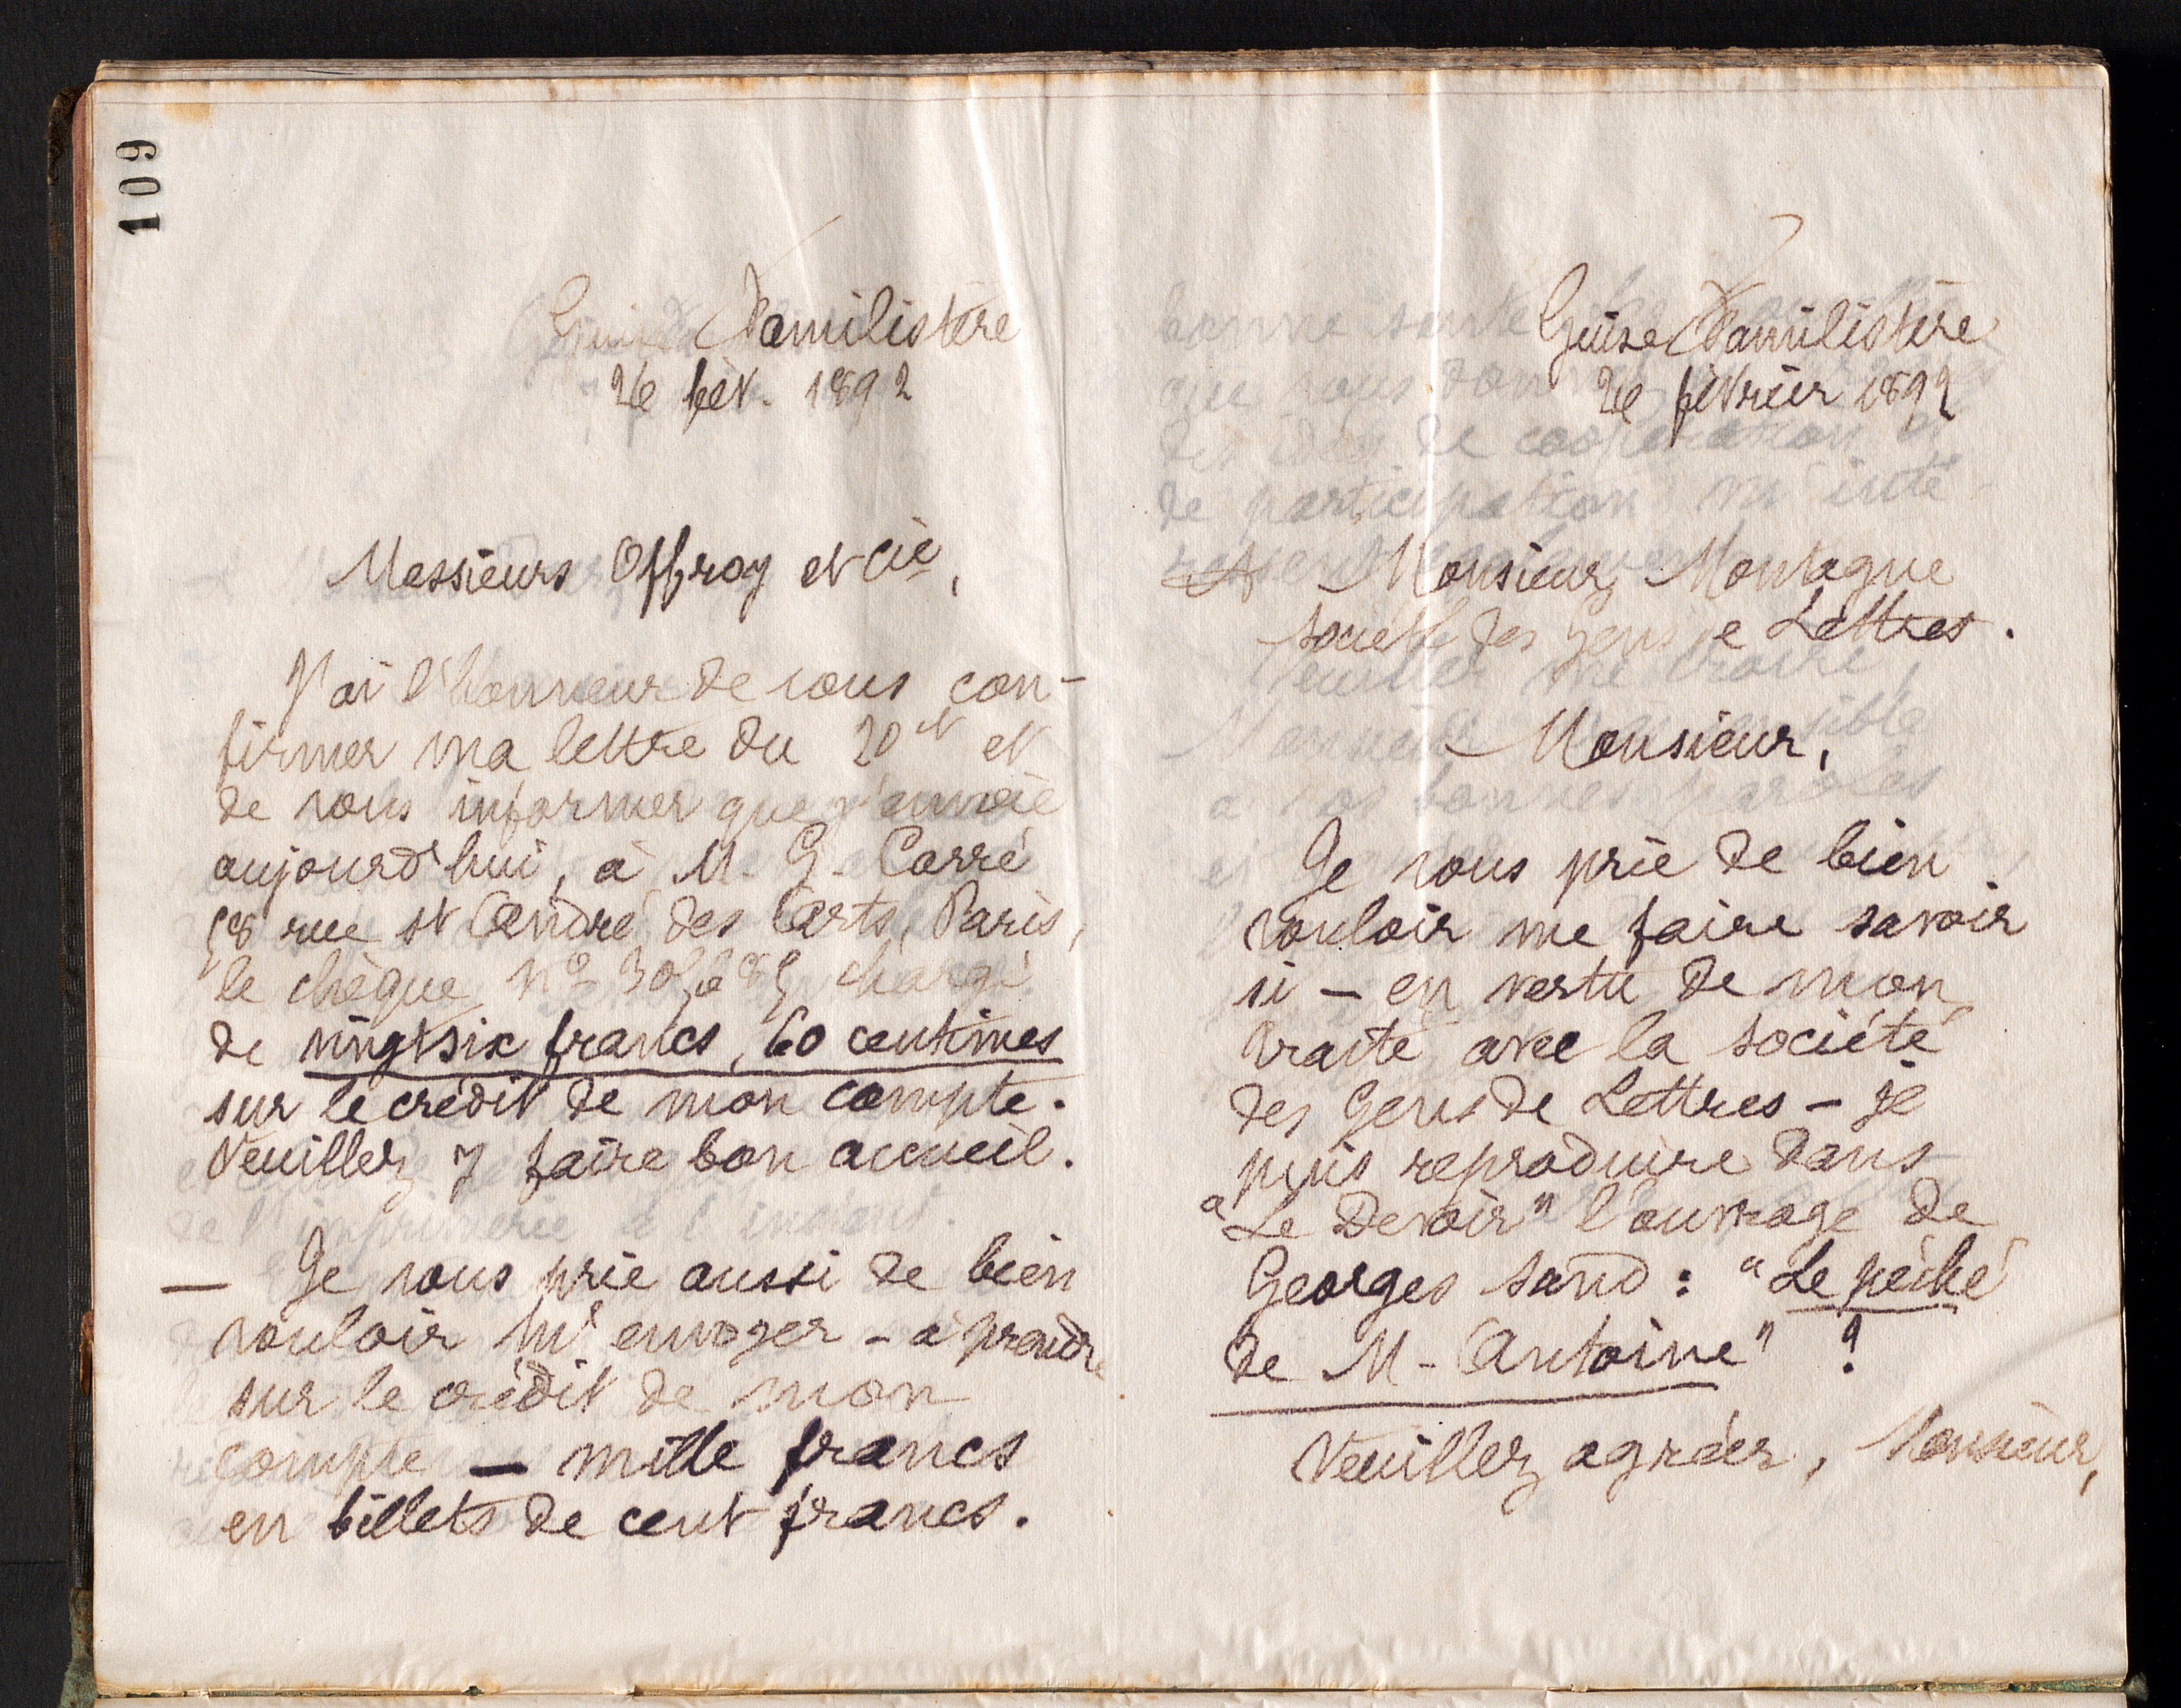 109
Guise Familistère
26 fév. 1892
Messieurs Offroy et Cie,
J'ai l'honneur de vous con-
firmer ma lettre du 20 ct et
de vous informer que j'envoie
aujourd'hui, à M. G. Carré
58 rue St André des Arts, Paris,
le chèque No chargé
de vingt six francs, 60 centimes
sur le crédit de mon compte.
Veuillez y faire bon accueil.
— Je vous prie aussi de bien
vouloir m'envoyer - à prendre
sur le crédit de mon
compte — mille francs
en billets de cent francs.
Guise Familistère
26 février 1892
A Monsieur Montagne
Société des Gens de Lettres.
Monsieur,
Je vous prie de bien
vouloir me faire savoir
si — en vertu de mon
traité avec la Société
des Gens de Lettres — je
puis reproduire dans
"Le Devoir" l'ouvrage de
Georges Sand : "Le péché
de M. Antoine" ?
Veuillez agréer, Monsieur,